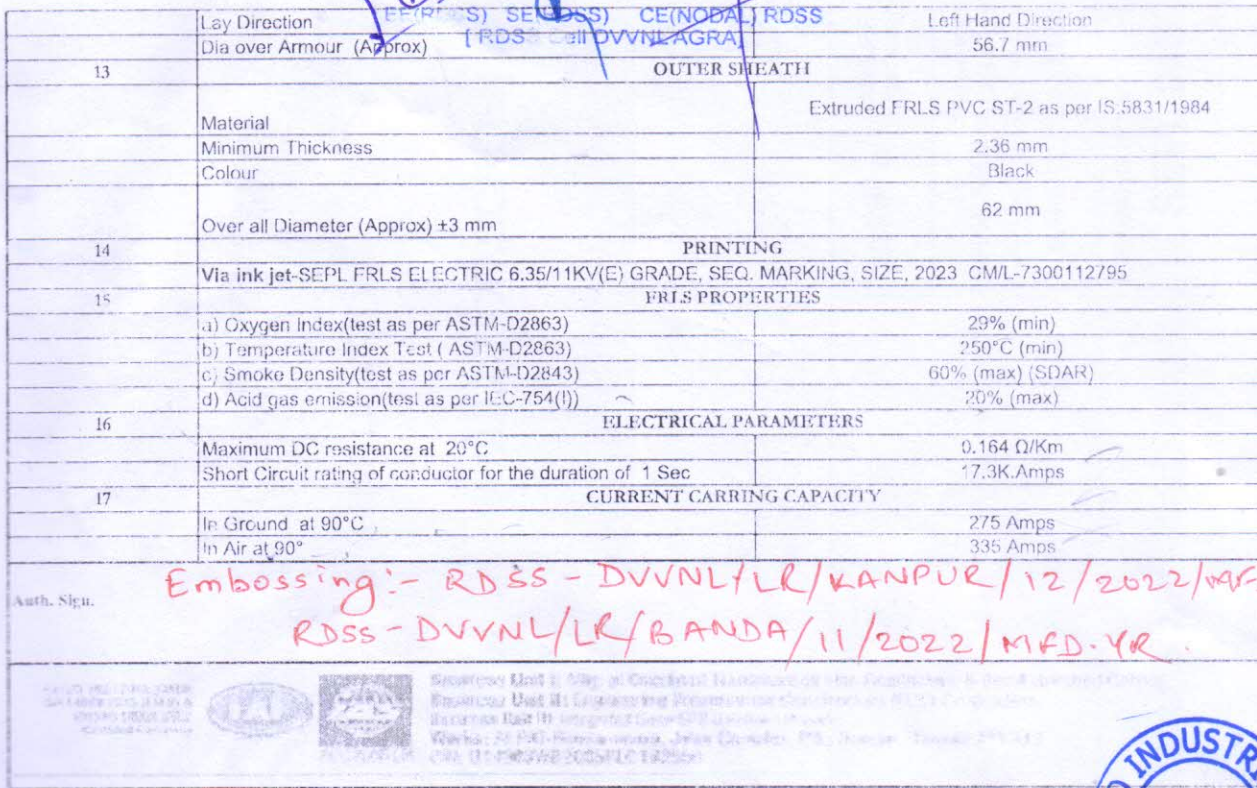 EE(RDSS) SE(RDSS) CE(NODAL) RDSS
[ RDSS Cell DVVNL AGRA]
Lay Direction Left Hand Direction
Dia over Armour (Approx) 56.7 mm
13 OUTER SHEATH
Material Extruded FRLS PVC ST-2 as per IS:5831/1984
Minimum Thickness 2.36 mm
Colour Black
Over all Diameter (Approx) ±3 mm 62 mm
14 PRINTING
Via ink jet-SEPL FRLS ELECTRIC 6.35/11KV(E) GRADE, SEQ. MARKING, SIZE, 2023 CM/L-7300112795
15 FRLS PROPERTIES
a) Oxygen Index(test as per ASTM-D2863) 29% (min)
b) Temperature Index Test ( ASTM-D2863) 250°C (min)
c) Smoke Density(test as per ASTM-D2843) 60% (max) (SDAR)
d) Acid gas emission(test as per IEC-754(I)) 20% (max)
16 ELECTRICAL PARAMETERS
Maximum DC resistance at 20°C 0.164 Ω/Km
Short Circuit rating of conductor for the duration of 1 Sec 17.3K.Amps
17 CURRENT CARRING CAPACITY
In Ground at 90°C 275 Amps
In Air at 90° 335 Amps
Embossing:- RDSS - DVVNL/LR/KANPUR/12/2022/MF
Auth. Sign.
RDSS-DVVNL/LR/BANDA/11/2022/MFD.YR.
INDUSTR